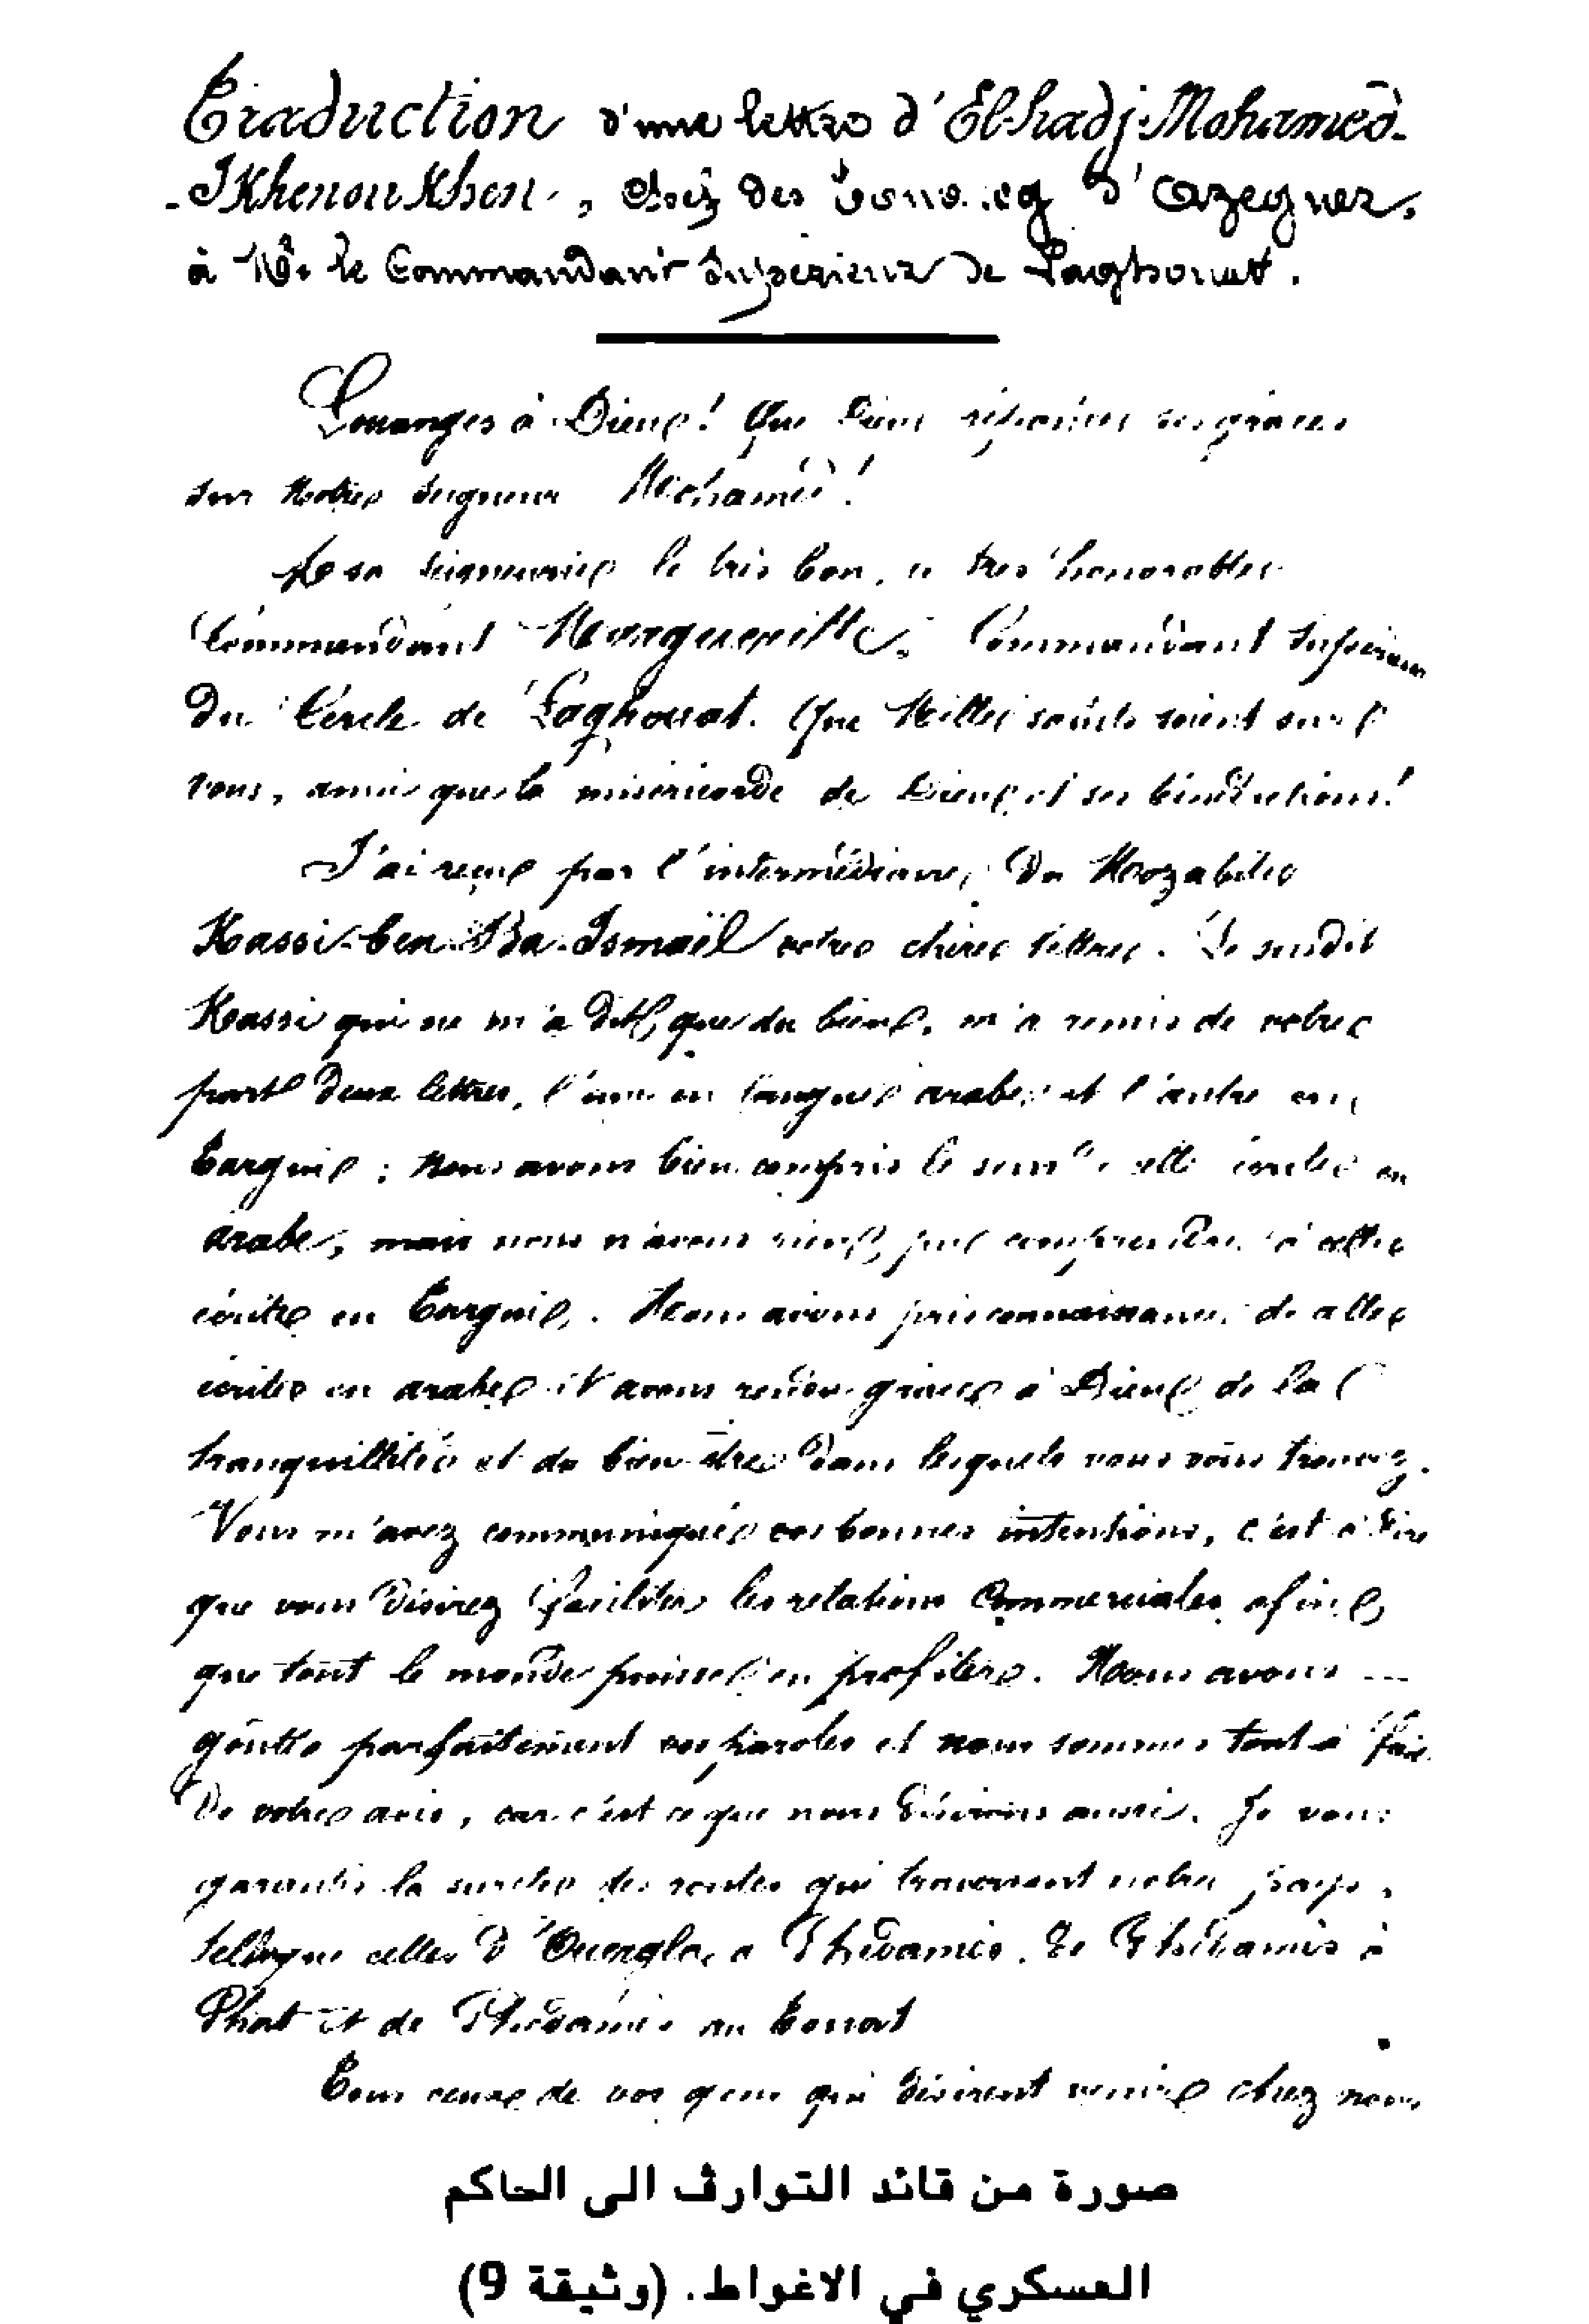 Traduction d'une lettre d'El-hadj-Mohamed-
-IKhenouKhen, chef des Touareg d'Azegueur,
à Mr le Commandant Supérieur de Laghouat.
Louanges à Dieu! Que Dieu répande ses grâces
sur Notre Seigneur Mohamed!
A sa seigneurie le très bon, le très honorable
Commandant Margueritte, Commandant Supérieur
du Cercle de Laghouat. Que Mille saluts soient sur
vous, ainsi que la miséricorde de Dieu et ses bénédictions!
J'ai reçu par l'intermédiaire du Mozabite
Kassi-ben-Ba-Ismaël votre chère lettre. Le susdit
Kassi qui ne m'a dit que du bien, m'a remis de votre
part deux lettres, l'une en langue arabe et l'autre en
Targui; Nous avons bien compris le sens de celle écrite en
arabe, mais nous n'avons rien pu comprendre à celle
écrite en Targui. Nous avons pris connaissance de celle
écrite en arabe et avons rendu grâce à Dieu de la
tranquillité et du bien être dans lesquels vous vous trouvez.
Vous m'avez communiqué vos bonnes intentions, c'est à dire
que vous désirez faciliter les relations Commerciales afin
que tout le monde puisse en profiter. Nous avons
goûté parfaitement vos paroles et nous sommes tout à fait
de votre avis, car c'est ce que nous désirons aussi. Je vous
garantis la sureté des routes qui traversent notre pays,
telles que celles d'Ouergla à Ghédamès, de Ghédamès à
Ghat et de Ghédamès au Touat
Tous ceux de vos gens qui désirent venir chez nous
صورة من قائد التوارڤ الى الحاكم
العسكري في الاغواط. (وثيقة 9)